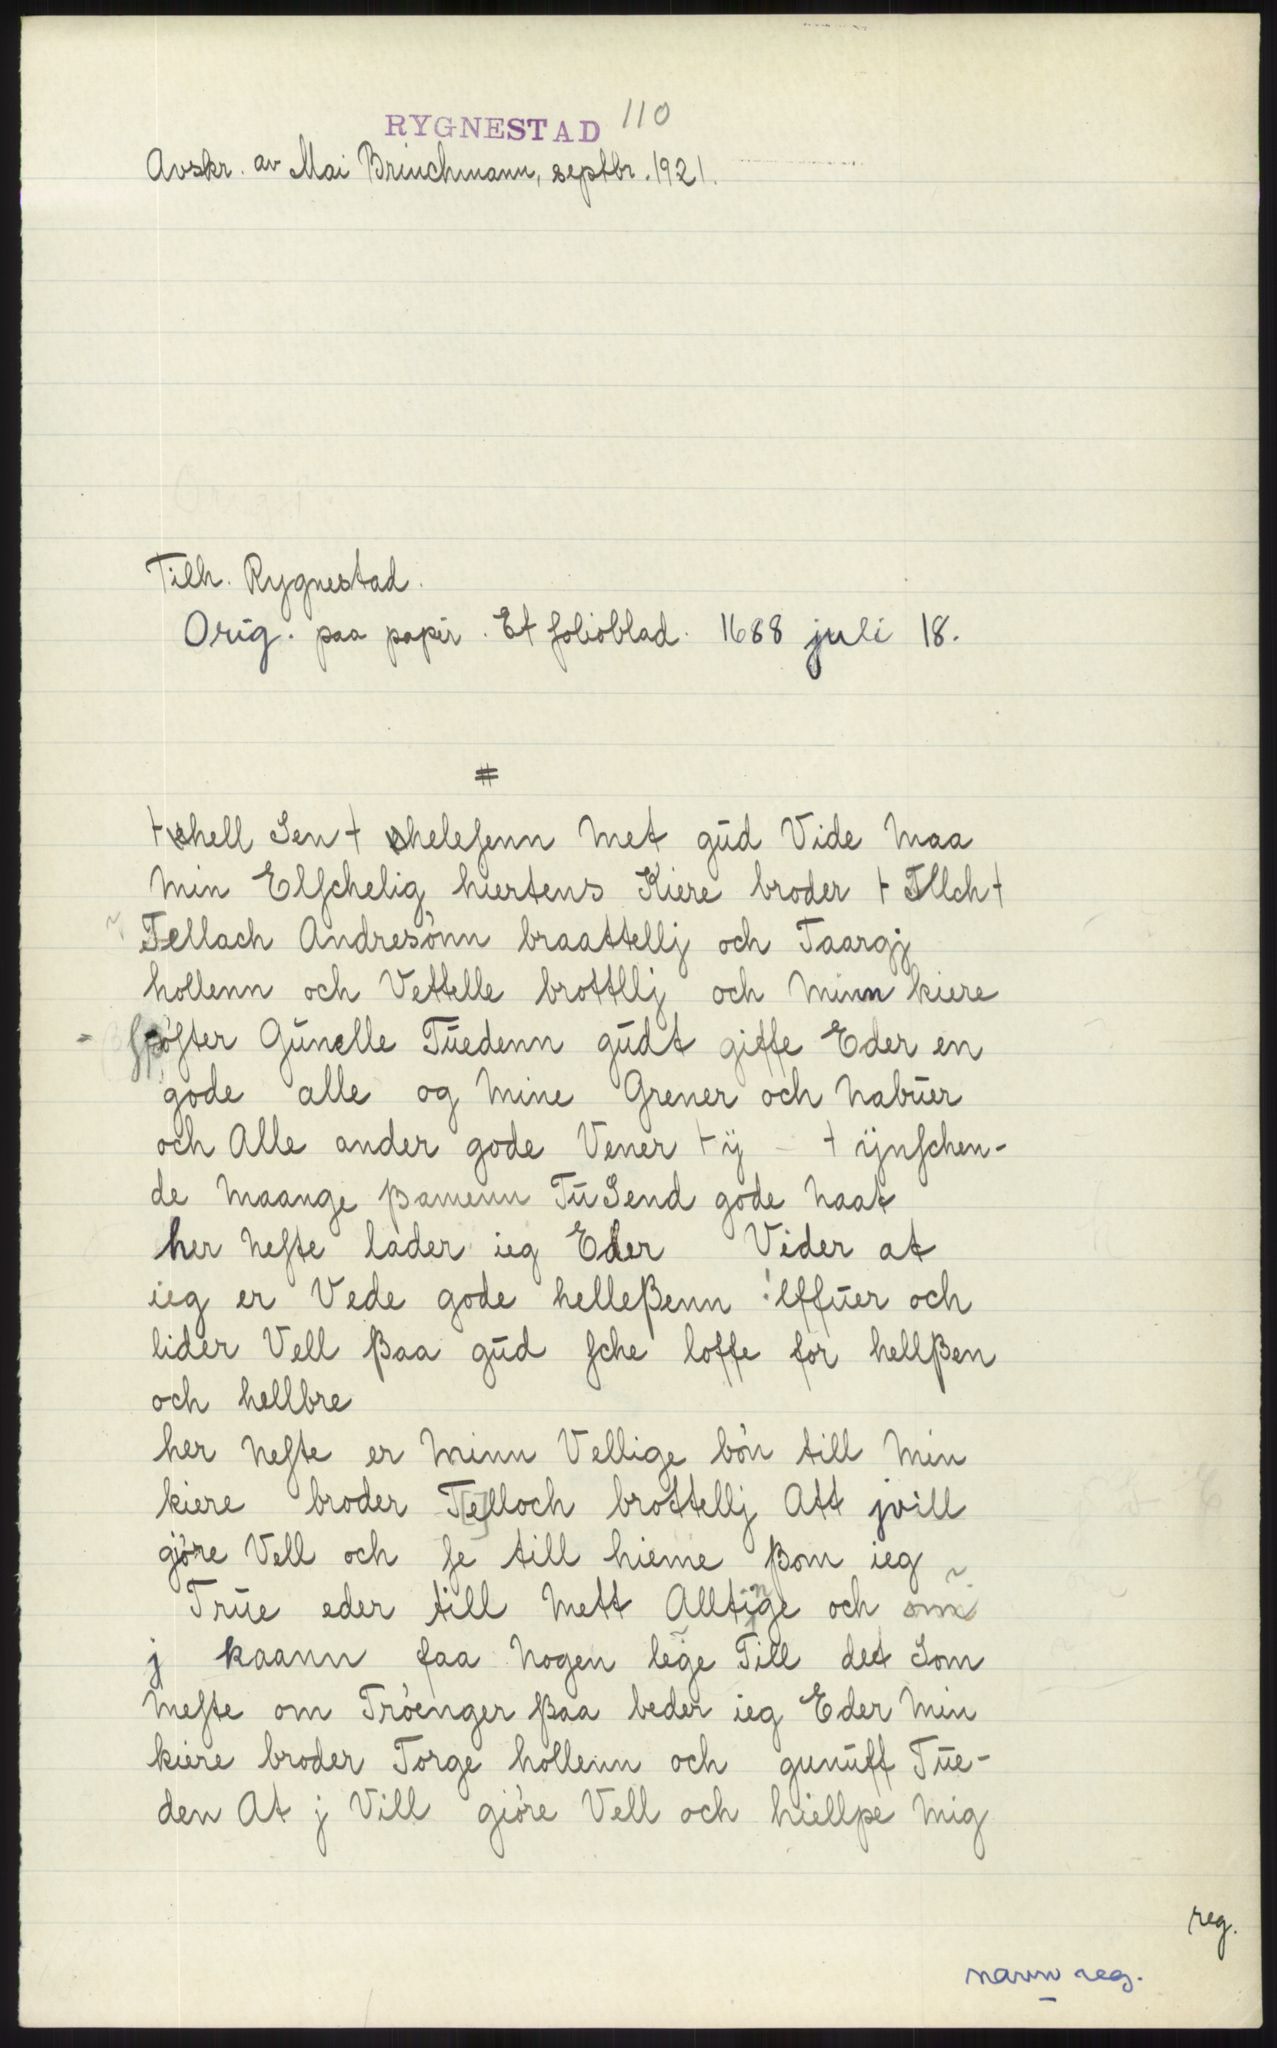 RYGNESTAD 110
Avskr. av Mai Brinchmann, septbr. 1921.
Tilh. Rygnestad.
Orig. paa papir. Et folioblad. 1688 juli 18.
#
+ shell Sen + shelesenn Met gūd Vide Maa
Min Elschelig hiertens Kiere broder + Tllch +
Tellach Andresönn braattellj och Taargj
hollenn och Vettelle brottllj och Minn kiere
söster Gūnelle Tūedenn gūdt giffe Eder en
gode alle og Mine Grener och Nabūer
och Alle ander gode Vener + ÿ - + ÿnschen-
de Maange ßamenn TūSend gode Naat
her Neste lader ieg Eder Vider at
ieg er Vede gode helleßenn leffūer och
lider Vell ßaa gūd sche loffe for hellßen
och hellbre
her Neste er Minn Vellige bön till Min
kiere broder T[e]lloch brottellj Att jvill
gjöre Vell och se till hieme ßom ieg
Trūe eder till Mett Alltinge och om
j kaann faa Nogen lege Till det Som
Meste om Tröenger ßaa beder ieg Eder Min
kiere broder Torge hollenn och gunūff Tūe-
den At j Vill giöre Vell och hiellpe Mig
reg.
navn reg.